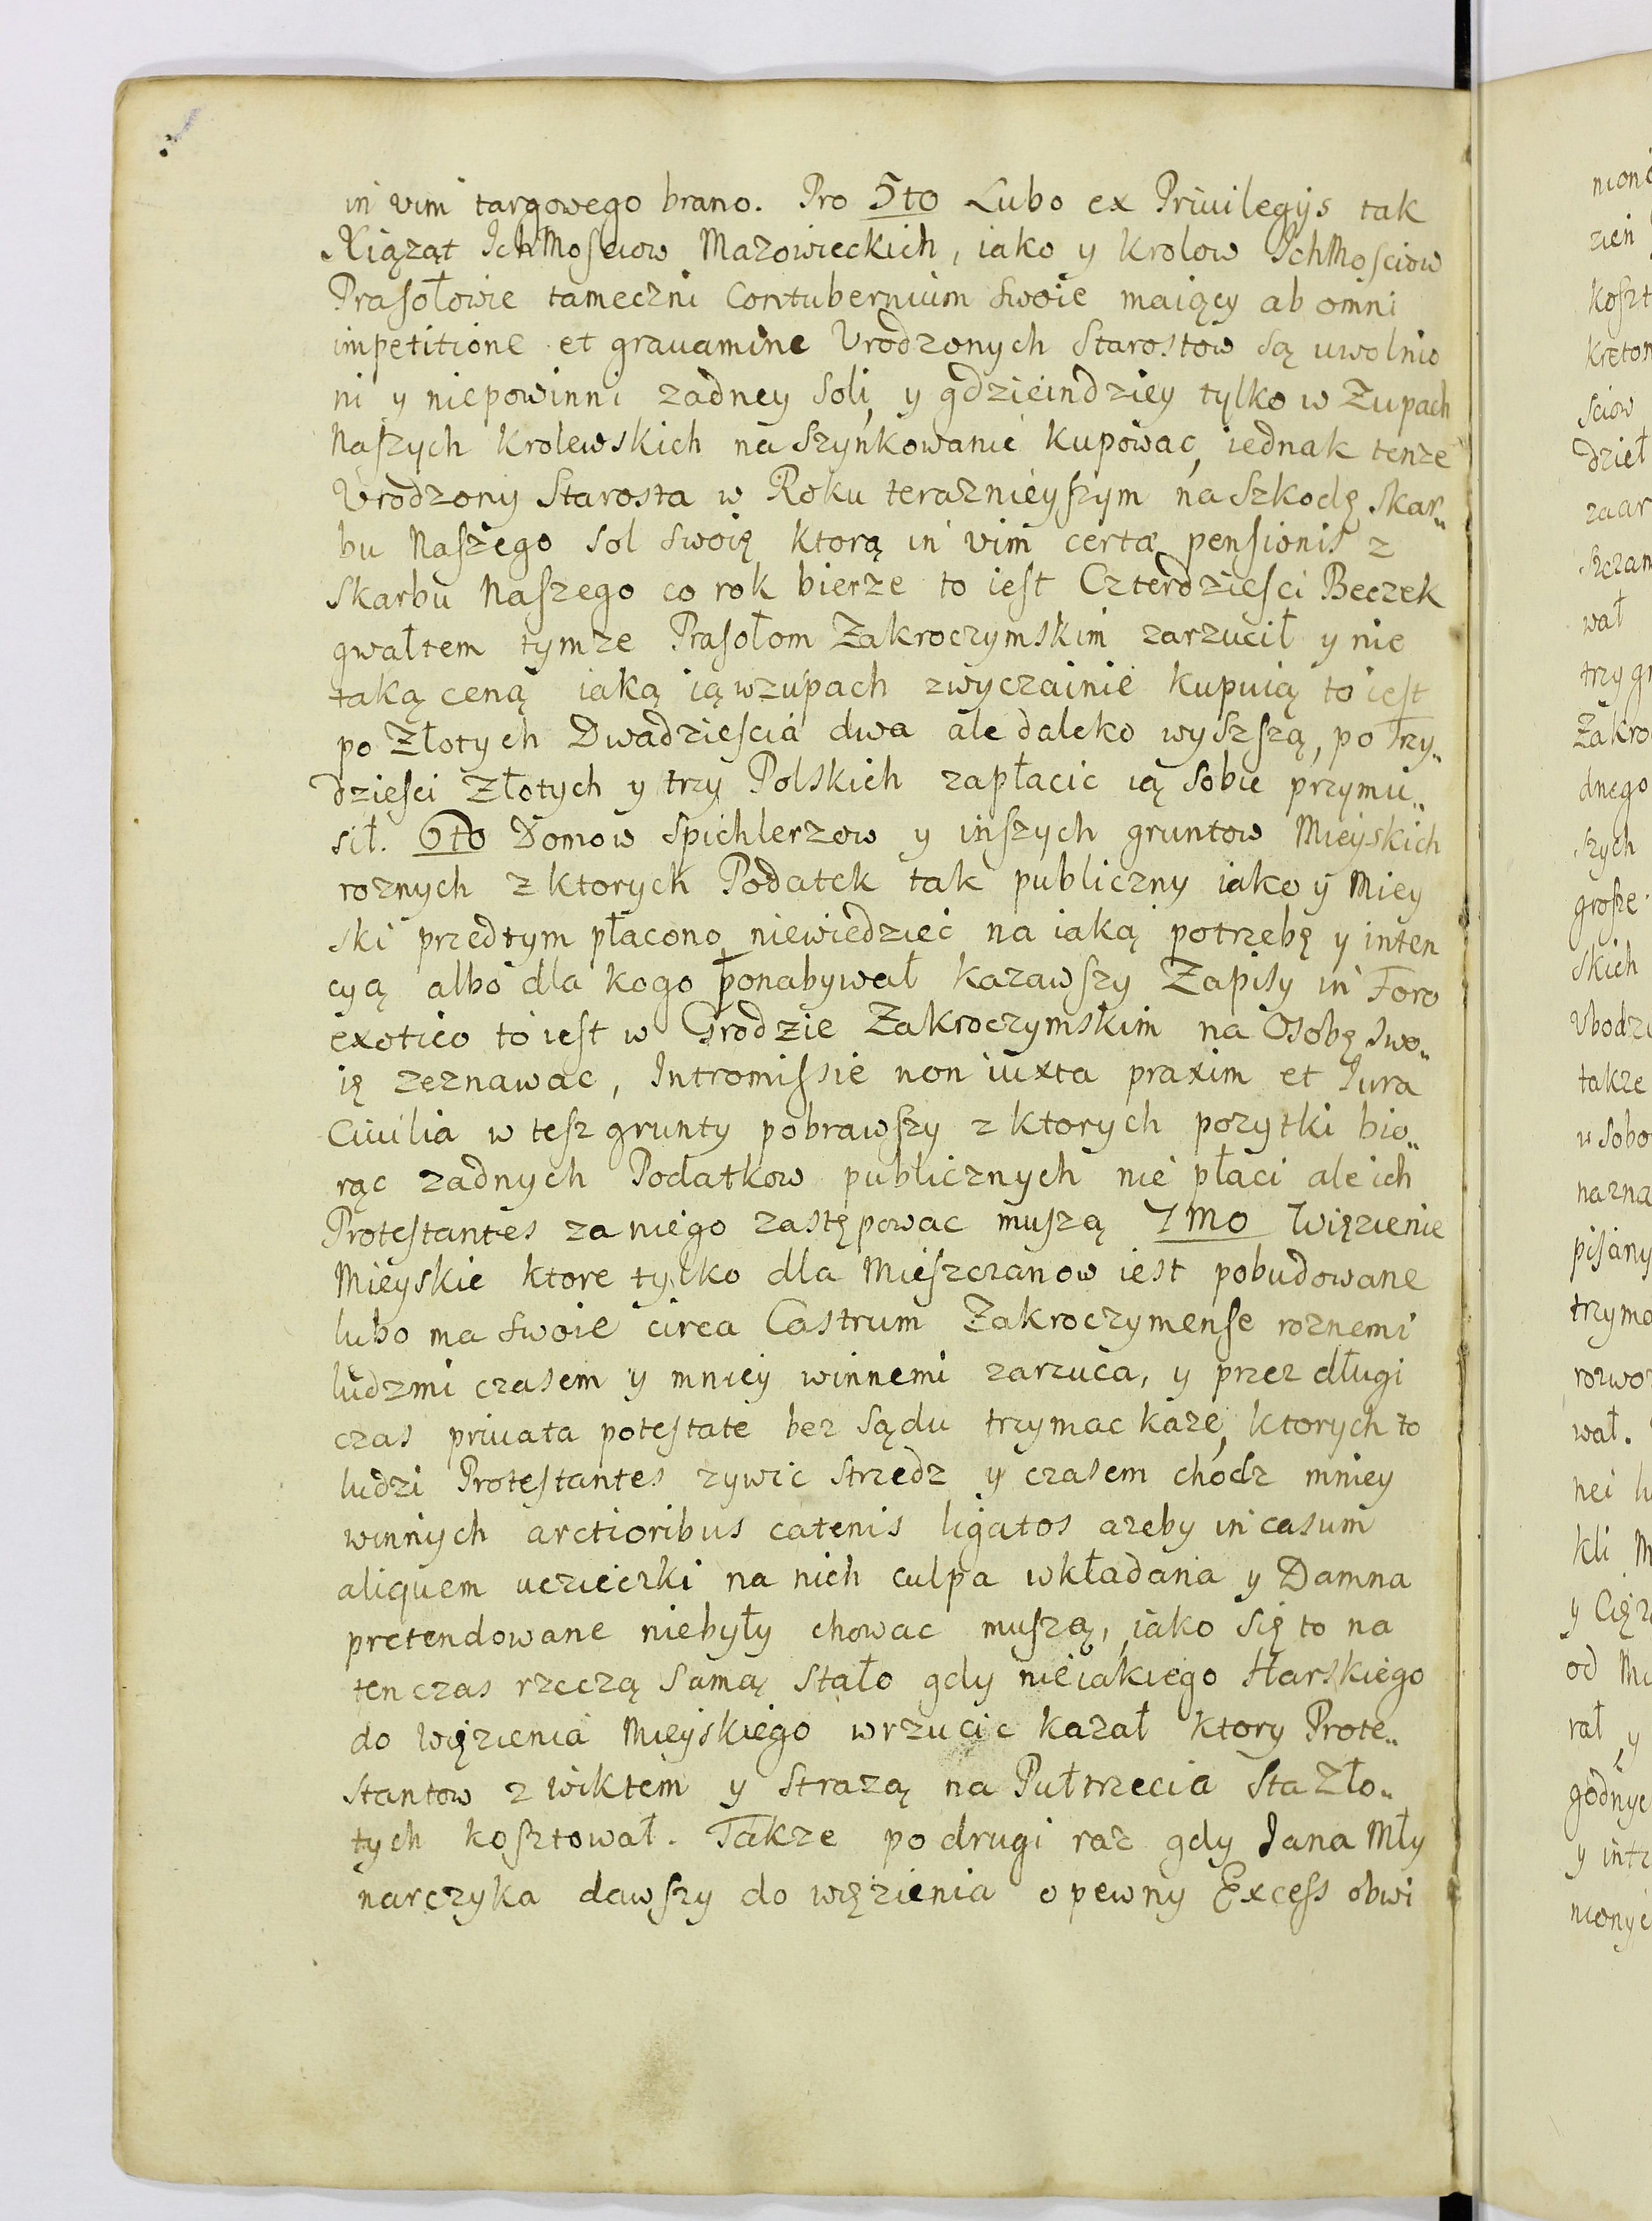 in vim targowego brano. Pro 5to Lubo ex Priuilegijs tak
Xiąząt IchMosciow Mazowieckich, iako y Krolow IchMosciow
Prasołowie tameczni Contubernium swoie maiący ab omni
impetitione et grauamine Vrodzonych Starostow są uwolnio
ni y niepowinni zadney soli, y gdzieindziey tylko w Zupach
Naszych Krolewskich na szynkowanie kupowac, iednak tenze
Vrodzony Starosta w Roku teraznieyszym na szkodę skar„
bu Naszego sol swoię ktorą in vim certæ pensionis z
skarbu Naszego co rok bierze to iest Czterdziesci Beczek
gwałtem tymze Prasołom Zakroczymskim zarzucił y nie
taką ceną iaką ią wzupach zwyczainie kupuią to iest
po Złotych Dwadziescia dwa ale daleko wyszszą, po Trzy„
dziesci Złotych y trzy Polskich zapłacic ią sobie przymu„
sił. 6to Domow Spichlerzow y inszych gruntow Mieyskich
roznych z ktorych Podatek tak publiczny iako y Miey
ski przedtym płacono, niewiedziec na iaką potrzebę y inten
cyą albo dla kogo ponabywał kazawszy Zapisy in Foro
exotico to iest w Grodzie Zakroczymskim na Osobę swo„
ię zeznawac, Intromissie non iuxta praxim et Iura
Ciuilia w tesz grunty pobrawszy z ktorych pozytki bio„
rąc zadnych Podatkow publicznych nie płaci ale ich
Protestantes za niego zastępowac muszą 7mo Więzienie
Mieyskie ktore tylko dla Mieszczanow iest pobudowane
lubo ma swoie circa Castrum Zakroczymense roznemi
ludzmi czasem y mniey winnemi zarzuca, y przez długi
czas priuata potestate bez sądu trzymac kaze, ktorych to
ludzi Protestantes zywic strzedz y czasem chodz mniey
winnych arctioribus catenis ligatos azeby in casum
aliquem uczieczki na nich culpa wkładana y Damna
pretendowane niebyły chowac muszą, iako się to na
ten czas rzeczą samą stało gdy nieiakiego Harskiego
do Więzienia Mieyskiego wrzucic kazał ktory Prote„
stantow z wiktem y strazą na Pułtrzecia sta Zło„
tych kosztował. Takze po drugi raz gdy Jana Mły
narczyka dawszy do więzienia o pewny Excess obwi